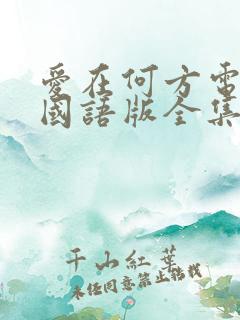 愛在何方電
國語版全集
千山紅葉
未經同意禁止轉載